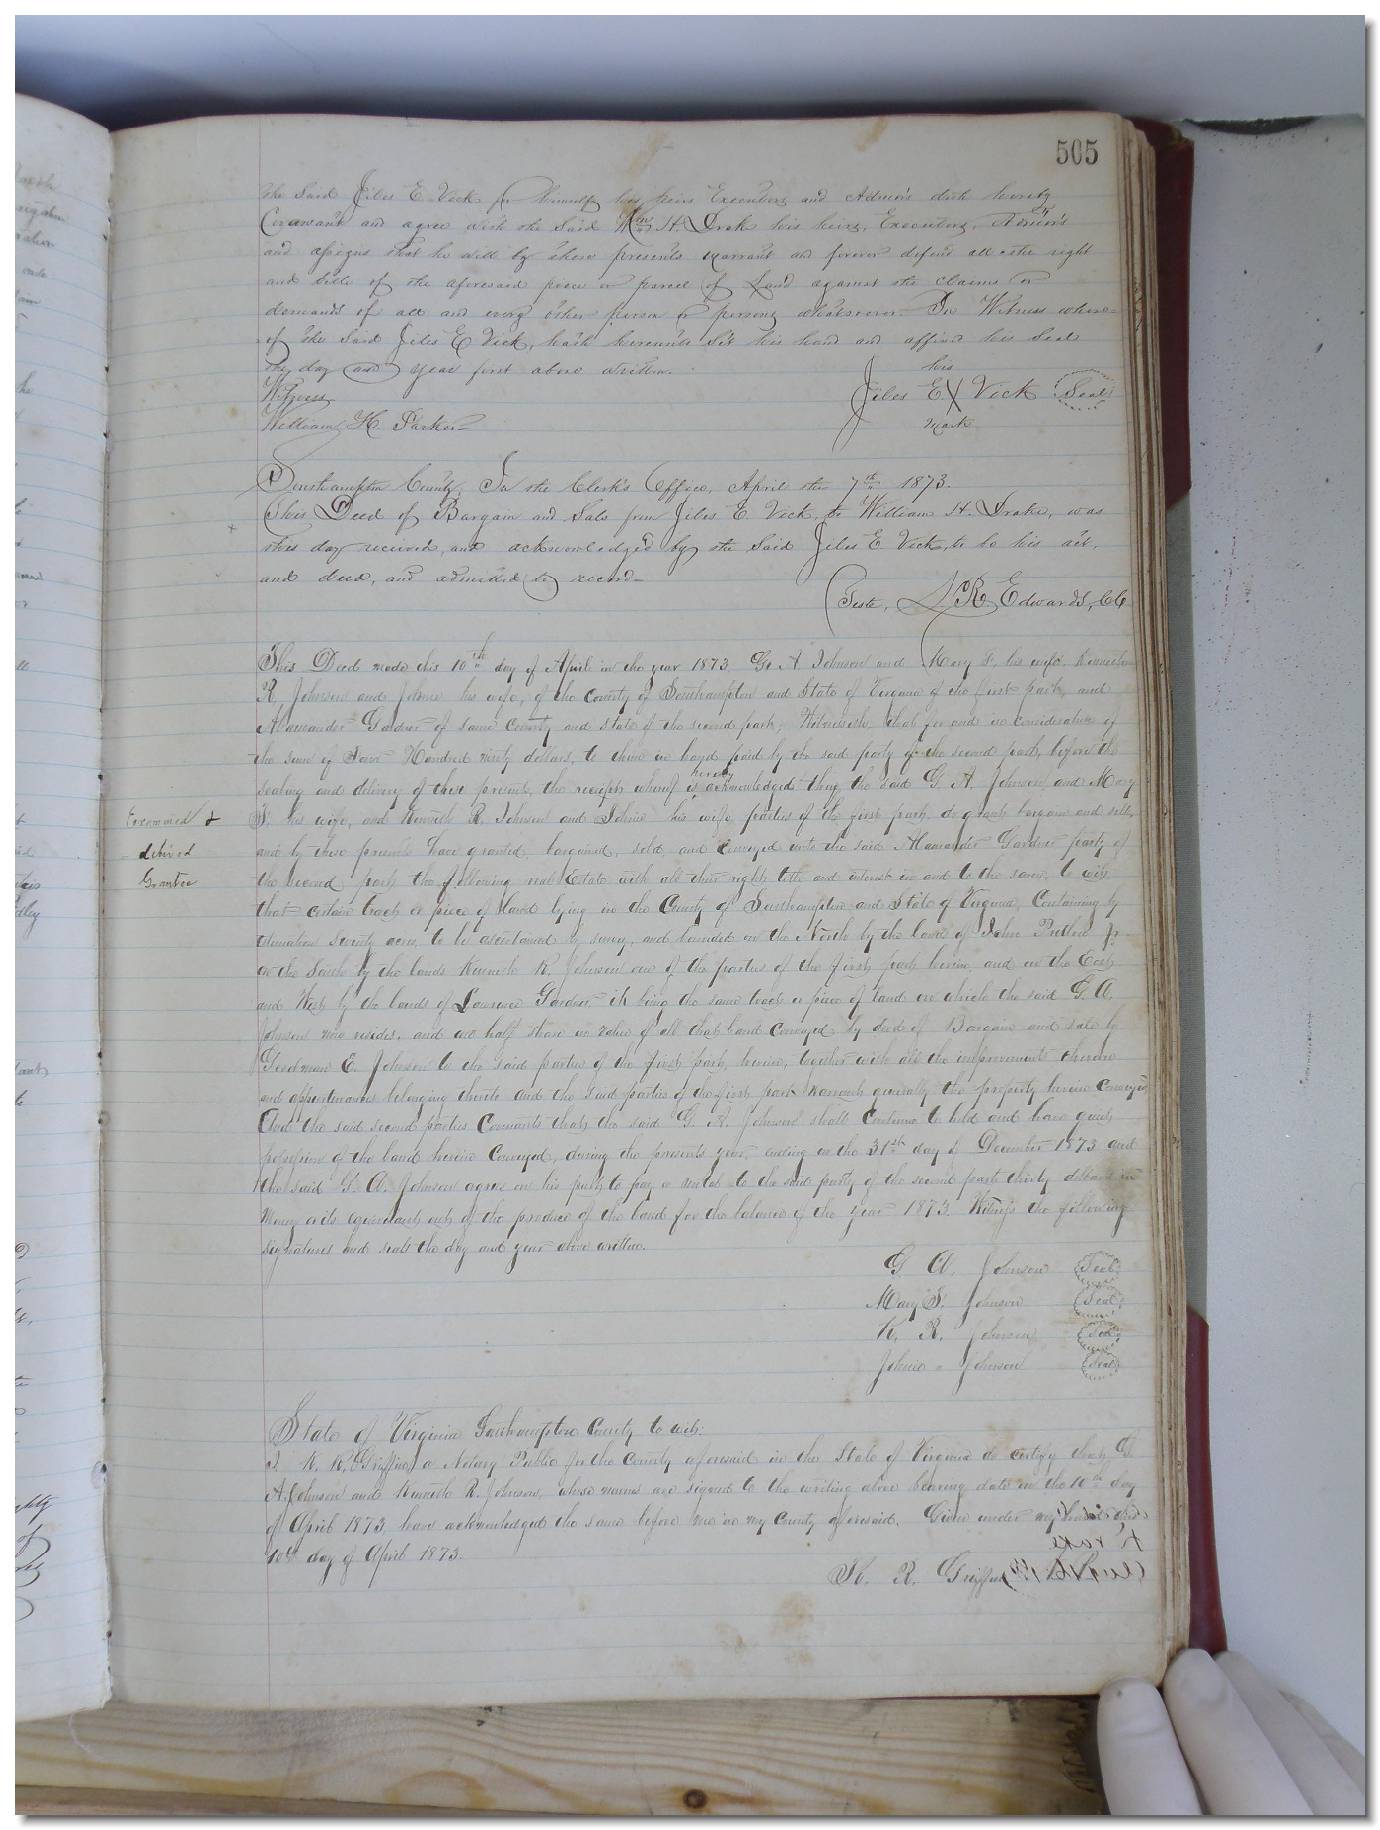 505
the Said Jiles E. Vick for himself his heirs Executors and Admors doth hereby
Covenant and agree with the Said Wm H. Drake his heirs, Executors, Admors
and assigns that he will by these presents warrant and forever defend all the right
and title of the aforesaid piece or parcel of Land against the claims or
demands of all and every other person or persons whatsoever. In Witness where-
of the Said Jiles E Vick, hath hereunto Set his hand and affixed his Seal
the day and year first above written.
his
Witness
Jiles E X Vick Seal
William H. Parker
mark
Southampton County, In the Clerk's Office, April the 7th 1873.
This Deed of Bargain and Sale from Jiles E. Vick, to William H. Drake, was
this day received, and acknowledged by the Said Jiles E Vick, to be his act,
and deed, and admitted to record-
Teste, L R Edwards, CC
This Deed made this 10th day of April in the year 1873 G. A Johnson and Mary S. his wife
R. Johnson and his wife, of the County of Southampton and State of Virginia of the first part, and
Gardner of same County and State of the second part, Witnesseth, that for and in consideration of
the sum of Hundred ninety dollars, to them in hand paid by the said party of the second part, before the
sealing and delivery of these presents, the receipt whereof is hereby acknowledged they the said G. A. Johnson and Mary
Examined &
S. his wife, and R. Johnson and his wife parties of the first part, do grant bargain and sell,
delivd
and by these presents have granted, bargained, sold, and conveyed unto the said Gardner party of
Grantee
the second part the following real Estate with all their right title and interest in and to the same, to wit,
that certain tract or piece of Land lying in the County of Southampton and State of Virginia, Containing by
estimation acres, to be ascertained by survey, and bounded on the North by the lands of John Pretlow Jr
on the South by the lands R. Johnson one of the parties of the first part herein, and on the East
and West by the lands of Lawrence Gardner, it being the same tract or piece of land on which the said G. A.
Johnson now resides, and one half share in value of all that land conveyed by deed of Bargain and sale by
E. Johnson to the said parties of the first part, herein, together with all the improvements thereon
and appurtenances belonging thereto and the said parties of the first part warrants generally the property herein conveyed
And the said second parties Covenants that the said G. A. Johnson shall continue to hold and have quiet
possession of the land herein Conveyed, during the present year, ending on the 31st day of December 1873 and
the said G. A. Johnson agree on his part to pay a rental to the said party of the second part thirty dollars in
money or its equivalent out of the produce of the land for the balance of the year 1873. Witness the following
signatures and seals the day and year above written.
G A. Johnson Seal
Mary S. Johnson Seal
K. R. Johnson Seal
Johnson Seal
State of Virginia Southampton County to wit:
I K. R. Griffin, a Notary Public for the County aforesaid in the State of Virginia do certify that G
A. Johnson and R. Johnson, whose names are signed to the writing above bearing date on the 10th day
of April 1873, have acknowledged the same before me in my County aforesaid. Given under my hand this
10th day of April 1873.
K. R. Griffin